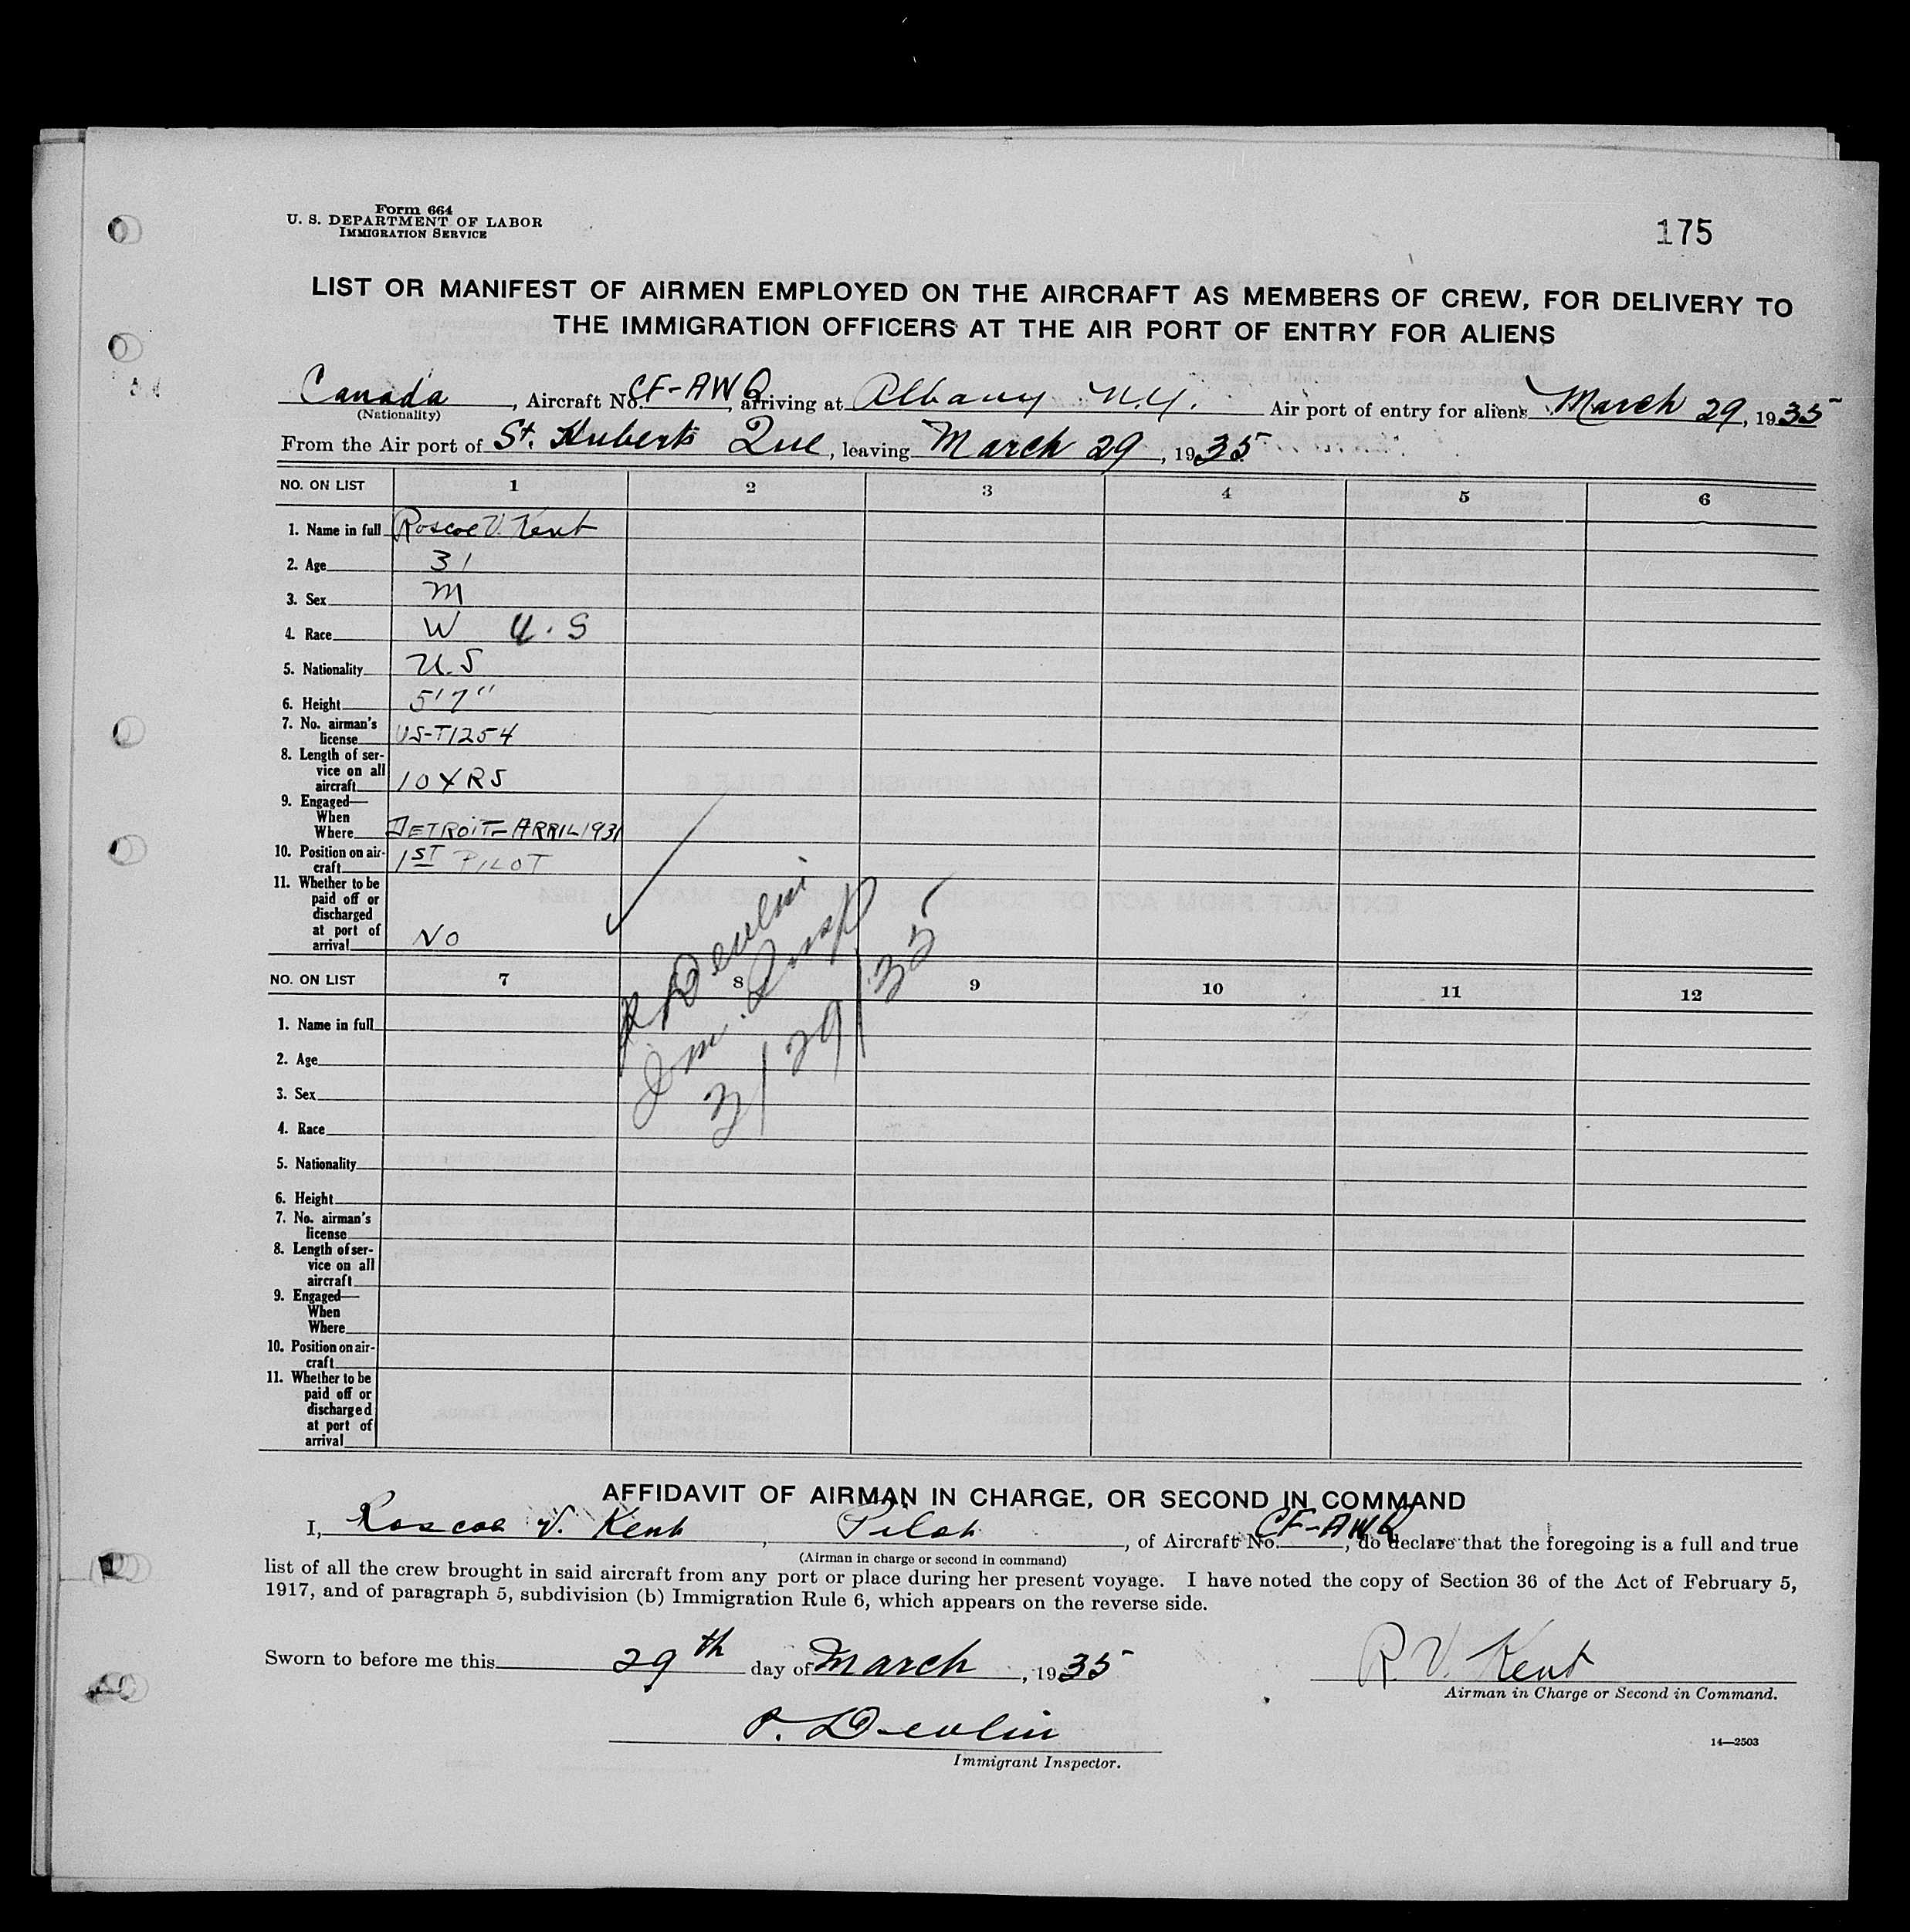 Form 664
U. S. DEPARTMENT OF LABOR
IMMIGRATION SERVICE
175
LIST OR MANIFEST OF AIRMEN EMPLOYED ON THE AIRCRAFT AS MEMBERS OF CREW, FOR DELIVERY TO
THE IMMIGRATION OFFICERS AT THE AIR PORT OF ENTRY FOR ALIENS
Canada, Aircraft No. CF-AWQ, arriving at Albany N.Y. Air port of entry for aliens March 29, 1935
(Nationality)
From the Air port of St. Huberts Que, leaving March 29, 1935
NO. ON LIST 1 2 3 4 5 6
1. Name in full Roscoe V. Kent
2. Age 31
3. Sex M
4. Race W U.S
5. Nationality U.S
6. Height 5'7"
7. No. airman's
license US-T1254
8. Length of ser-
vice on all
aircraft 10 YRS
9. Engaged—
When
Where DETROIT-APRIL 1931
10. Position on air-
craft 1ST PILOT
11. Whether to be
paid off or
discharged
at port of
arrival NO
P. Devlin
Im. Insp
3/29/35
NO. ON LIST 7 8 9 10 11 12
1. Name in full
2. Age
3. Sex
4. Race
5. Nationality
6. Height
7. No. airman's
license
8. Length of ser-
vice on all
aircraft
9. Engaged—
When
Where
10. Position on air-
craft
11. Whether to be
paid off or
discharged
at port of
arrival
AFFIDAVIT OF AIRMAN IN CHARGE, OR SECOND IN COMMAND
I, Roscoe V. Kent, Pilot, of Aircraft No. CF-AWQ, do declare that the foregoing is a full and true
(Airman in charge or second in command)
list of all the crew brought in said aircraft from any port or place during her present voyage. I have noted the copy of Section 36 of the Act of February 5,
1917, and of paragraph 5, subdivision (b) Immigration Rule 6, which appears on the reverse side.
Sworn to before me this 29th day of March, 1935
R. V. Kent
Airman in Charge or Second in Command.
P. Devlin
Immigrant Inspector.
14—2503